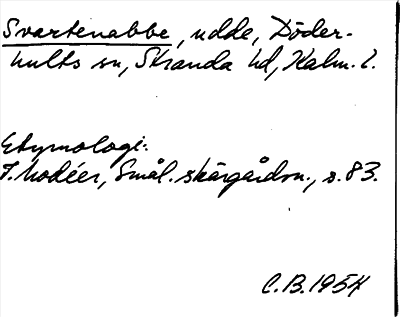 Svartenabbe, udde, Döder-
hults sn, Stranda hd, Kalm. l.
Etymologi:
I. Modéer, Smål. skärgårdsn., s. 83.
C.B. 1954